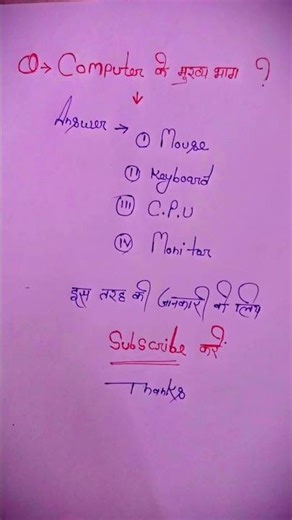 ①→ Computer के मुख्य भाग ?
Answer →
① Mouse
② Keyboard
③ C.P.U
④ Monitor
इस तरह की जानकारी के लिए
Subscribe करें
Thanks